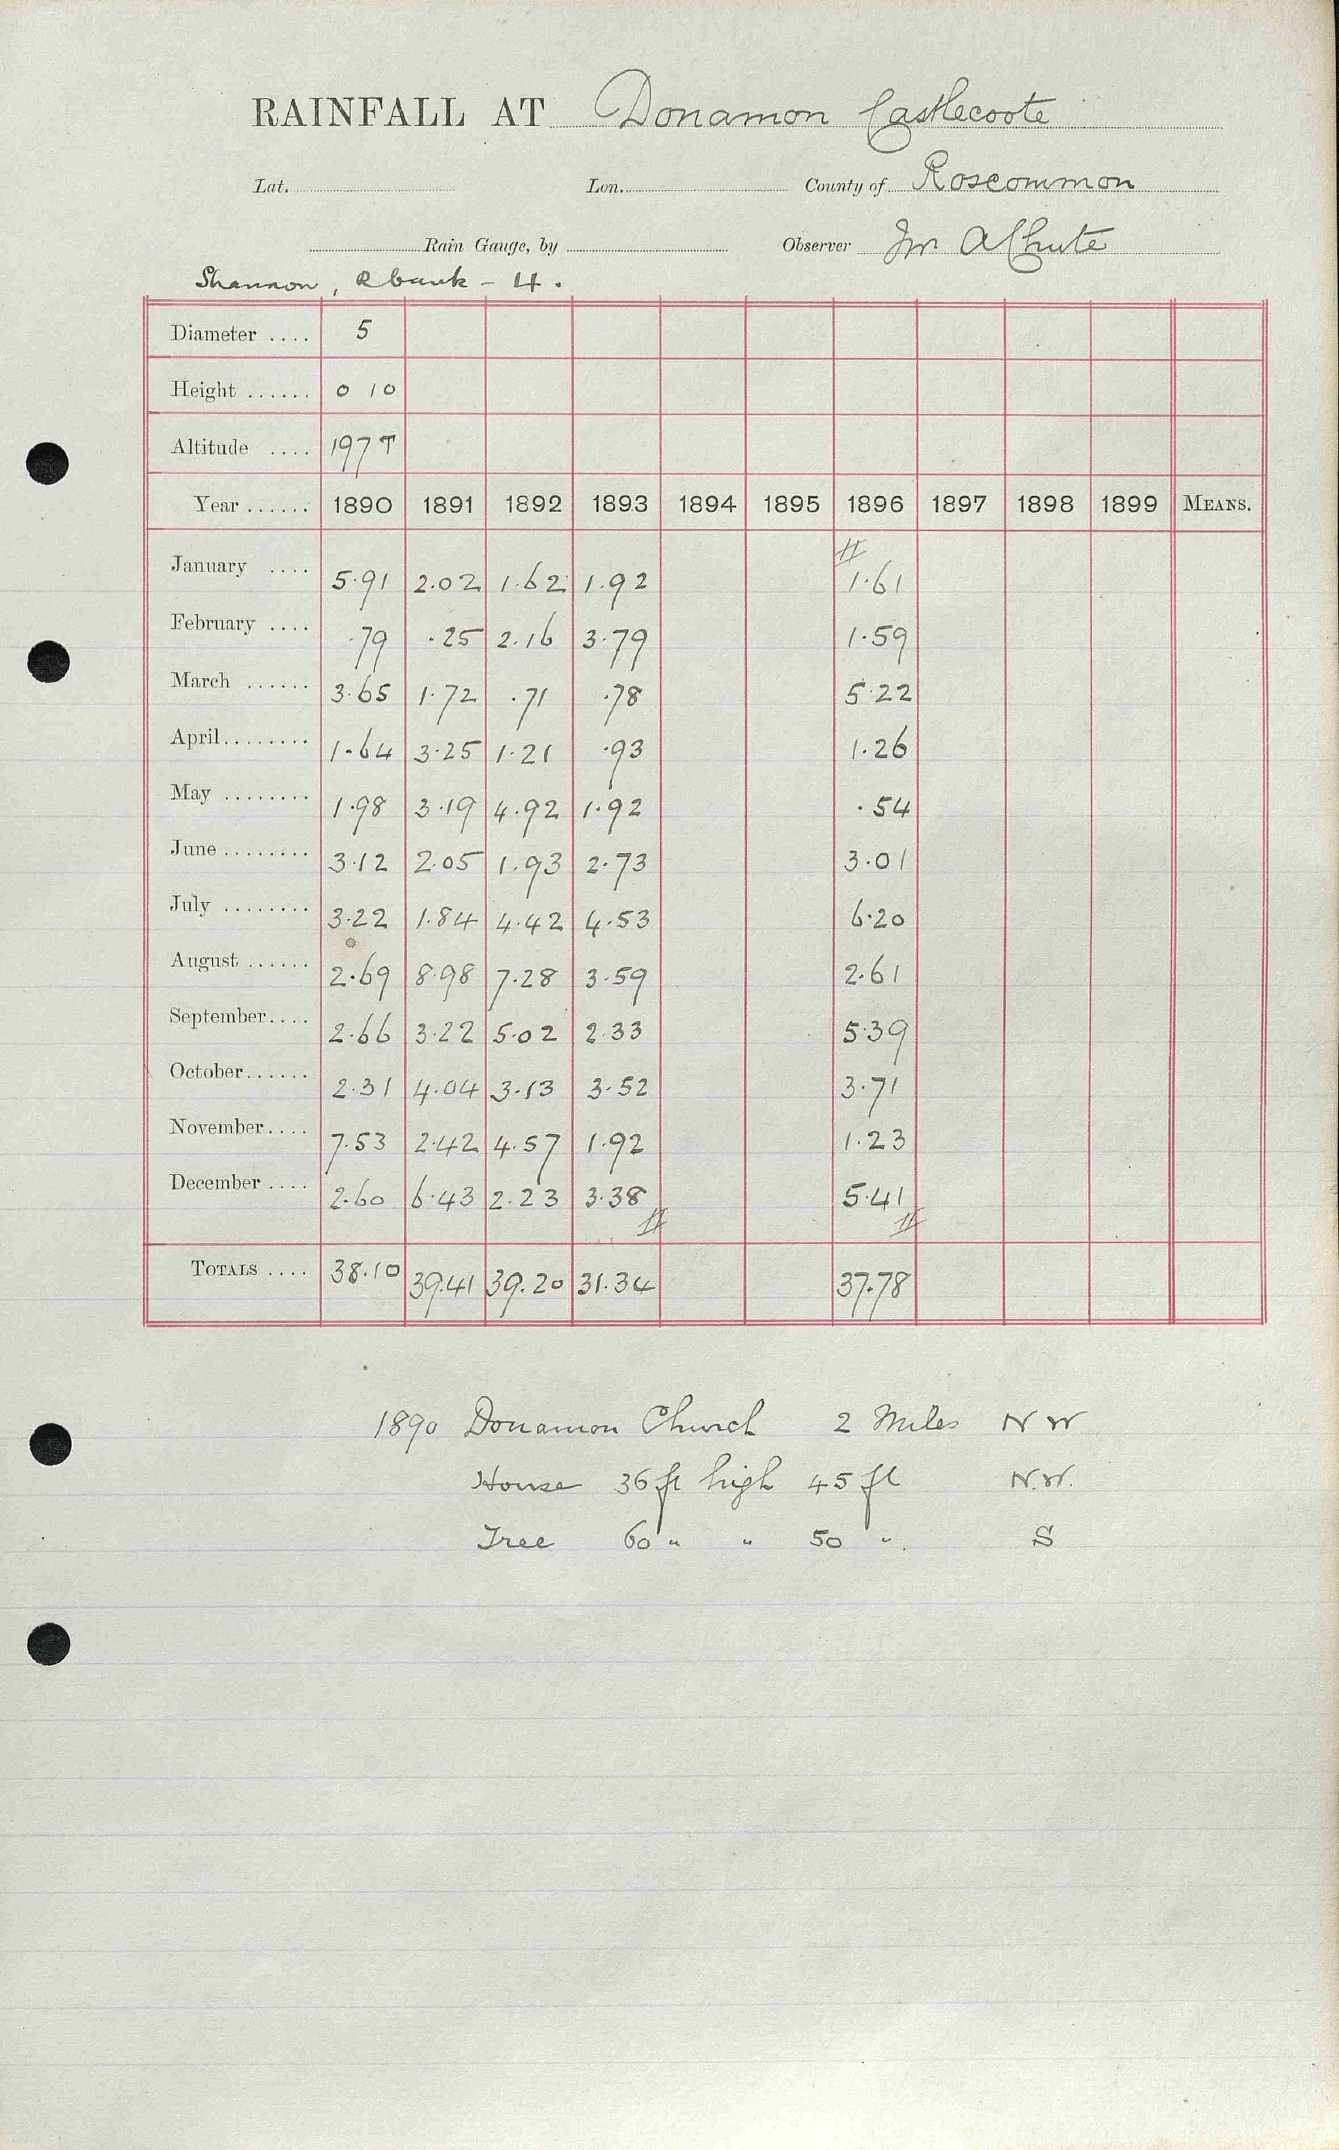 RAINFALL AT Donamon Castlecoote
Lat. Lon. County of Roscommon
Rain Gauge, by Observer A Chute
Shannon, R bank - 4.
Diameter .... 5
Height ...... 0 10
Altitude .... 197 T
Year ...... 1890 1891 1892 1893 1894 1895 1896 1897 1898 1899 MEANS.
January .... 5.91 2.02 1.62 1.92 # 1.61
February .... .79 .25 2.16 3.79 1.59
March ...... 3.65 1.72 .71 .78 5.22
April........ 1.64 3.25 1.21 .93 1.26
May ........ 1.98 3.19 4.92 1.92 .54
June ........ 3.12 2.05 1.93 2.73 3.01
July ........ 3.22 1.84 4.42 4.53 6.20
August ...... 2.69 8.98 7.28 3.59 2.61
September.... 2.66 3.22 5.02 2.33 5.39
October...... 2.31 4.04 3.13 3.52 3.71
November.... 7.53 2.42 4.57 1.92 1.23
December .... 2.60 6.43 2.23 3.38 # 5.41 #
TOTALS .... 38.10 39.41 39.20 31.34 37.78
1890 Donamon Church 2 Miles N W
House 36 ft high 45 ft N.W.
Tree 60 " " 50 " . S